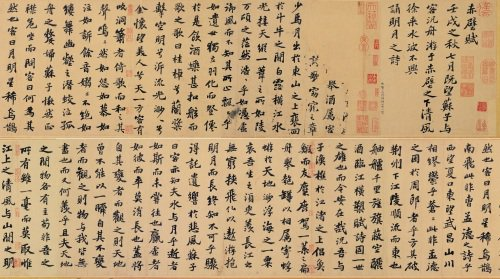 赤壁賦
壬戌之秋七月既望蘇子與
客泛舟游於赤壁之下清風
徐來水波不興
舉酒屬客
誦明月之詩
歌窈窕之章
少焉月出於東山之上裴回
於斗牛之間白露橫江水
光接天縱一葦之所如陵
萬頃之茫然浩浩乎如馮虛
御風而不知其所止飄飄乎
如遺世獨立羽化而登僊
於是飲酒樂甚扣舷而
歌之歌曰桂棹兮蘭槳
擊空明兮泝流光渺渺兮
余懷望美人兮天一方客有
吹洞簫者倚歌而和之其
聲嗚嗚然如怨如慕如
泣如訴餘音嫋嫋不絕如
縷舞幽壑之潛蛟泣孤
舟之嫠婦蘇子愀然正
襟危坐而問客曰何為其
然也客曰月明星稀烏鵲
然也客曰月明星稀烏鵲
南飛此非曹孟德之詩乎
西望夏口東望武昌山川
相繆鬱乎蒼蒼此非孟德
之困于周郎者乎方其破
荆州下江陵順流而東也
舳艫千里旌旗蔽空釃
酒臨江橫槊賦詩固一世
之雄也而今安在哉況吾與子
漁樵於江渚之上侶魚
鰕而友麋鹿駕一葉之扁
舟舉匏樽以相屬寄蜉
蝣於天地渺浮海之一粟
哀吾生之須臾羨長江之
無窮挾飛仙以遨游抱
明月而長終知不可乎驟
得託遺響於悲風蘇子
曰客亦知夫水與月乎逝者
如斯而未嘗往也盈虛者
如彼而卒莫消長也蓋將
自其變者而觀之則天地
曾不能以一瞬自其不變
者而觀之則物與我皆無
盡也而又何羨乎且夫天地
之間物各有主苟非吾之
所有雖一毫而莫取惟
江上之清風與山間之明